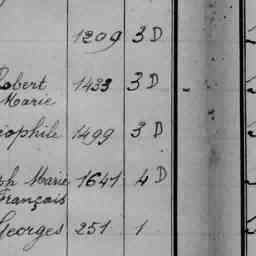 1209 3 D
Robert 1433 3 D
Marie
éophile 1499 3 D
ph Marie 1641 4 D
François
Georges 251 1